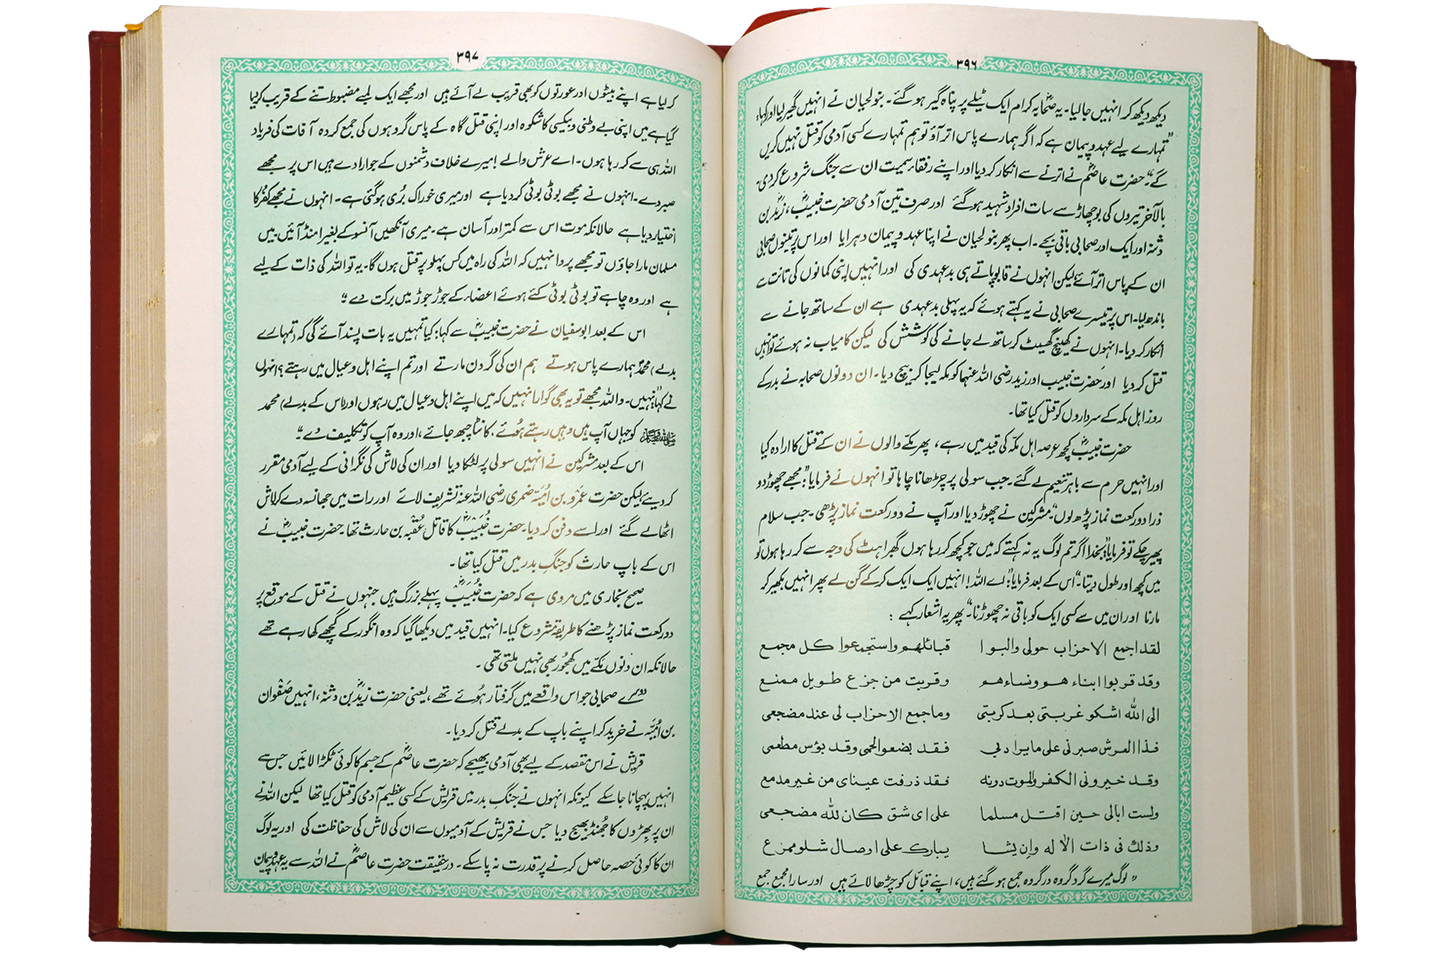 ۳۹۶
دیکھ دیکھ کر انہیں جا لیا۔ یہ صحابہ کرام ایک ٹیلے پر پناہ گیر ہو گئے۔ بنو لحیان نے انہیں گھیر لیا اور کہا،
"تمہارے لیے عہد و پیمان ہے کہ اگر ہمارے پاس اتر آؤ تو ہم تمہارے کسی آدمی کو قتل نہیں کریں
گے"۔ حضرت عاصمؓ نے اترنے سے انکار کر دیا اور اپنے رفقاء سمیت ان سے جنگ شروع کر دی۔
بالآخر تیروں کی بوچھاڑ سے سات افراد شہید ہو گئے اور صرف تین آدمی حضرت خبیبؓ، زیدؓ بن
دثنہ اور ایک اور صحابی باقی بچے۔ اب پھر بنو لحیان نے اپنا عہد و پیمان دہرایا اور اس پر تینوں صحابی
ان کے پاس اتر آئے لیکن انہوں نے قابو پاتے ہی بدعہدی کی اور انہیں اپنی کمانوں کی تانت سے
باندھ لیا۔ اس پر تیسرے صحابی نے یہ کہتے ہوئے کہ یہ پہلی بدعہدی ہے ان کے ساتھ جانے سے
انکار کر دیا۔ انہوں نے کھینچ گھسیٹ کر ساتھ لے جانے کی کوشش کی لیکن کامیاب نہ ہوئے تو انہیں
قتل کر دیا اور حضرت خبیب اور زید رضی اللہ عنہما کو مکہ لیجا کر بیچ دیا۔ ان دونوں صحابہ نے بدر کے
روز اہل مکہ کے سرداروں کو قتل کیا تھا۔
حضرت خبیبؓ کچھ عرصہ اہل مکہ کی قید میں رہے، پھر مکے والوں نے ان کے قتل کا ارادہ کیا
اور انہیں حرم سے باہر تنعیم لے گئے۔ جب سولی پر چڑھانا چاہا تو انہوں نے فرمایا: "مجھے چھوڑ دو
ذرا دو رکعت نماز پڑھ لوں"۔ مشرکین نے چھوڑ دیا اور آپ نے دو رکعت نماز پڑھی۔ جب سلام
پھیر چکے تو فرمایا: "بخدا اگر تم لوگ یہ نہ کہتے کہ میں جو کچھ کر رہا ہوں گھبراہٹ کی وجہ سے کر رہا ہوں تو
میں کچھ اور طول دیتا"۔ اس کے بعد فرمایا: "اے اللہ! انہیں ایک ایک کر کے گن لے پھر انہیں بکھیر کر
مارنا اور ان میں سے کسی ایک کو باقی نہ چھوڑنا"۔ پھر یہ اشعار کہے :
لقد اجمع الاحزاب حولی والبوا قبائلهم واستجمعوا کل مجمع
وقد قربوا ابناءهم ونساءهم وقربت من جزع طویل ممنع
الی اللہ اشکو غربتی بعد کربتی وما جمع الاحزاب لی عند مضجعی
فذا العرش صبرنی علی ما یراد بی فقد بضعوا لحمی وقد بؤس مطعمی
وقد خیرونی الکفر والموت دونه فقد ذرفت عینای من غیر مدمع
ولست ابالی حین اقتل مسلما علی ای شق کان للہ مضجعی
وذلک فی ذات الالٰہ وان یشا یبارک علی اوصال شلو ممزع
"لوگ میرے گرد گروہ در گروہ جمع ہو گئے ہیں، اپنے قبائل کو چڑھا لائے ہیں اور سارا مجمع جمع
۳۹۷
کر لیا ہے اپنے بیٹوں اور عورتوں کو بھی قریب لے آئے ہیں اور مجھے ایک لمبے مضبوط تنے کے قریب کر دیا
گیا ہے میں اپنی بے وطنی و بیکسی کا شکوہ اور اپنی قتل گاہ کے پاس گروہوں کی جمع کردہ آفات کی فریاد
اللہ ہی سے کر رہا ہوں۔ اے عرش والے! میرے خلاف دشمنوں کے جو ارادے ہیں اس پر مجھے
صبر دے۔ انہوں نے مجھے بوٹی بوٹی کر دیا ہے اور میری خوراک بُری ہو گئی ہے۔ انہوں نے مجھے کفر کا
اختیار دیا ہے حالانکہ موت اس سے کمتر اور آسان ہے۔ میری آنکھیں آنسو کے بغیر امنڈ آئیں۔ میں
مسلمان مارا جاؤں تو مجھے پروا نہیں کہ اللہ کی راہ میں کس پہلو پر قتل ہوں گا۔ یہ تو اللہ کی ذات کے لیے
ہے اور وہ چاہے تو بوٹی بوٹی کئے ہوئے اعضاء کے جوڑ جوڑ میں برکت دے"
اس کے بعد ابوسفیان نے حضرت خبیبؓ سے کہا: کیا تمہیں یہ بات پسند آئے گی کہ (تمہارے
بدلے) محمدؐ ہمارے پاس ہوتے ہم ان کی گردن مارتے اور تم اپنے اہل و عیال میں رہتے؟ انہوں
نے کہا: "نہیں۔ واللہ مجھے تو یہ بھی گوارا نہیں کہ میں اپنے اہل و عیال میں رہوں اور (اس کے بدلے) محمد
ﷺ کو جہاں آپ ہیں وہیں رہتے ہوئے، کانٹا چبھ جائے، اور وہ آپ کو تکلیف دے"۔
اس کے بعد مشرکین نے انہیں سولی پر لٹکا دیا اور ان کی لاش کی نگرانی کے لیے آدمی مقرر
کر دیئے لیکن حضرت عمرو بن امیہ ضمری رضی اللہ عنہ تشریف لائے اور رات میں جھانسہ دے کر لاش
اٹھا لے گئے اور اسے دفن کر دیا۔ حضرت خبیبؓ کا قاتل عقبہ بن حارث تھا۔ حضرت خبیبؓ نے
اس کے باپ حارث کو جنگ بدر میں قتل کیا تھا۔
صحیح بخاری میں مروی ہے کہ حضرت خبیبؓ پہلے بزرگ ہیں جنہوں نے قتل کے موقع پر
دو رکعت نماز پڑھنے کا طریقہ شروع کیا۔ انہیں قید میں دیکھا گیا کہ وہ انگور کے گچھے کھا رہے تھے
حالانکہ ان دنوں مکے میں کھجور بھی نہیں ملتی تھی۔
دوسرے صحابی جو اس واقعے میں گرفتار ہوئے تھے، یعنی حضرت زیدؓ بن دثنہ، انہیں صفوان
بن امیہ نے خرید کر اپنے باپ کے بدلے قتل کر دیا۔
قریش نے اس مقصد کے لیے بھی آدمی بھیجے کہ حضرت عاصمؓ کے جسم کا کوئی ٹکڑا لائیں جس سے
انہیں پہچانا جا سکے کیونکہ انہوں نے جنگ بدر میں قریش کے کسی عظیم آدمی کو قتل کیا تھا لیکن اللہ نے
ان پر بھڑوں کا جھنڈ بھیج دیا جس نے قریش کے آدمیوں سے ان کی لاش کی حفاظت کی اور یہ لوگ
ان کا کوئی حصہ حاصل کرنے پر قدرت نہ پا سکے۔ درحقیقت حضرت عاصمؓ نے اللہ سے یہ عہد و پیمان